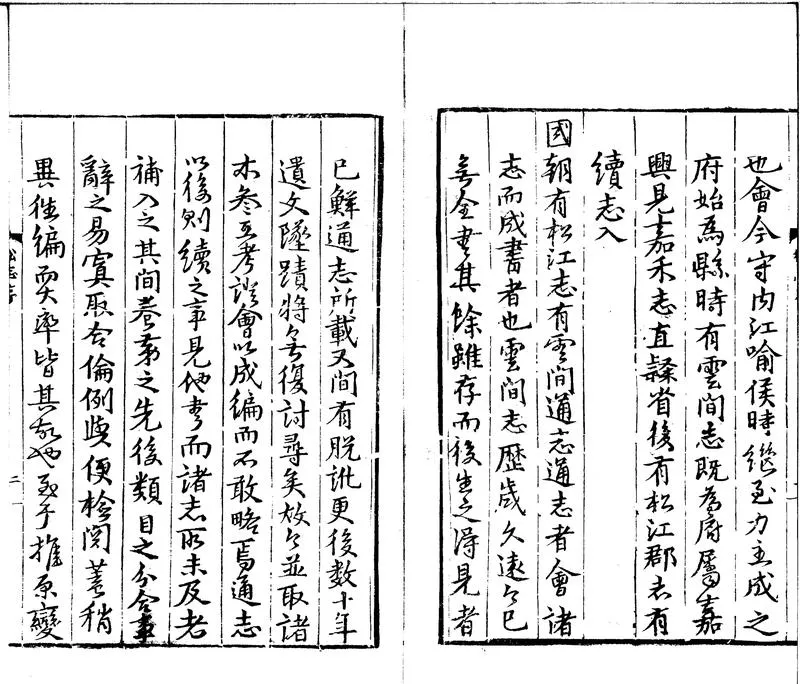 也會今守內江喻侯時繼至力主成之
府始為縣時有雲間志既為府屬嘉
興見嘉禾志直隸省後有松江郡志有
續志入
國朝有松江志有雲間通志通志者會諸
志而成書者也雲間志歷歲久遠今已
無全書其餘雖存而後生之得見者
已鮮通志所載又間有脫訛更後數十年
遺文墜蹟將無復討尋矣故今並取諸
本參互考證會以成編而不敢略焉通志
以後則續之事見他書而諸志所未及者
補入之其間卷第之先後類目之分合事
辭之易寘取合倫例與便檢閱蓋稍
異徃編而大率皆其故也至于推原變
松志序
二